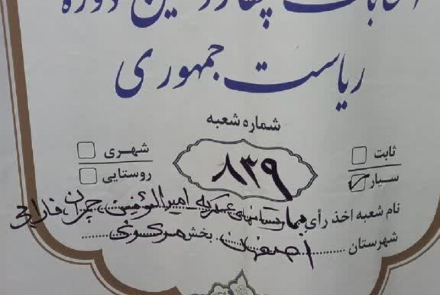 انتخابات چهاردهمین دوره
ریاست جمهوری
شماره شعبه
۸۳۹
ثابت
سیار
شهری
روستایی
نام شعبه اخذ رأی بیمارستانهای عسکریه امیرالمؤمنین
شهرستان اصفهان بخش مرکزی